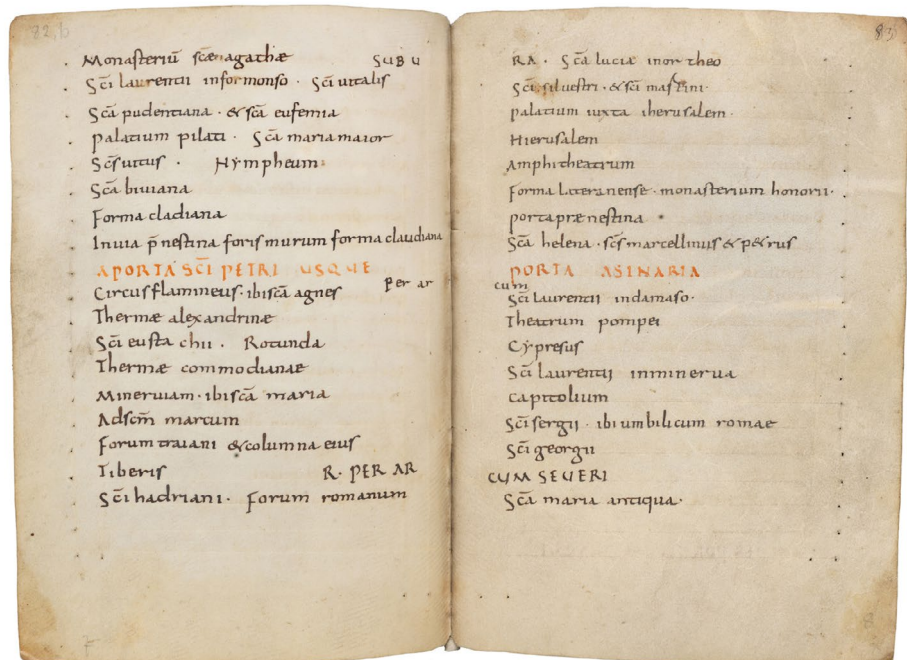 82,b
Monasteriū scæ agathæ SUBU
Sci laurentii informonso · Sci uitalis
Sca pudentiana · & sca eufemia
palatium pilati · Sca maria maior
Scs uitus · Nympheum
Sca biuiana
Forma cladiana
Inuia p̄nestina foris murum forma claudiana
A PORTA SCI PETRI USQUE
Circus flamineus · ibi sca agnes Per ar
Thermæ alexandrinæ
Sci eustachii · Rotunda
Thermæ commodianæ
Mineruiam · ibi sca maria
Ad scm marcum
Forum traiani & columna eius
Tiberis R · PER AR
Sci hadriani · Forum romanum
83
RA · Sca lucia inortheo
Sci siluestri · & sci martini ·
palatium iuxta iherusalem ·
Hierusalem
Amphitheatrum
Forma lateranense · monasterium honorii ·
porta prænestina
Sca helena · scs marcellinus & petrus
PORTA ASINARIA
cum
Sci laurentii indamaso ·
Theatrum pompei
Cypresus
Sci laurentii inminerua
Capitolium
Sci sergii · ibi umbilicum romae
Sci georgii
CUM SEUERI
Sca maria antiqua ·